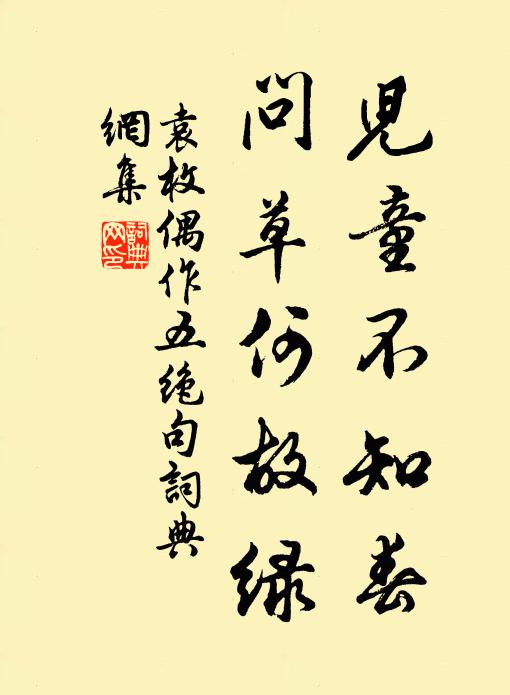 兒童不知春
問草何故綠
袁枚偶作五絶句詞典
網集
詞典
网印